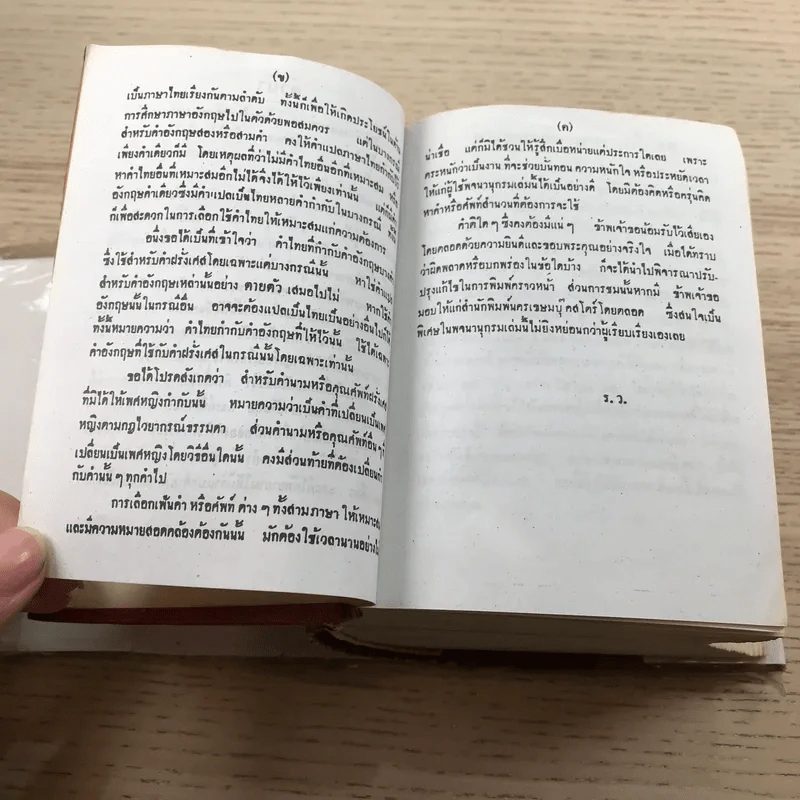 (ข)
เป็นภาษาไทยเรียงกันตามลำดับ ทั้งนี้ก็เพื่อให้เกิดประโยชน์ใน
การศึกษาภาษาอังกฤษไปในตัวด้วยพอสมควร แต่ในบางกรณี
สำหรับคำอังกฤษสองหรือสามคำ คงให้คำแปลภาษาไทยกำกับ
เพียงคำเดียวก็มี โดยเหตุผลที่ว่าไม่มีคำไทยอื่นอีกที่เหมาะสม หรือ
หาคำไทยอื่นที่เหมาะสมอีกไม่ได้จึงได้ให้ไว้เพียงเท่านั้น แต่ก็มีคำ
อังกฤษคำเดียวซึ่งมีคำแปลเป็นไทยหลายคำกำกับในบางกรณี ทั้งนี้
ก็เพื่อสะดวกในการเลือกใช้คำไทยให้เหมาะสมแก่ความต้องการ
อนึ่งขอได้เป็นที่เข้าใจว่า คำไทยที่กำกับคำอังกฤษบางคำ
ซึ่งใช้สำหรับคำฝรั่งเศสโดยเฉพาะแต่บางกรณีนั้น หาใช้คำแปล
สำหรับคำอังกฤษเหล่านั้นอย่าง ตายตัว เสมอไปไม่ หากใช้คำ
อังกฤษนั้นในกรณีอื่น อาจจะต้องแปลเป็นไทยเป็นอย่างอื่นไปก็ได้
ทั้งนี้หมายความว่า คำไทยกำกับคำอังกฤษที่ให้ไว้นั้น ใช้ได้เฉพาะ
คำอังกฤษที่ใช้กับคำฝรั่งเศสในกรณีนั้นโดยเฉพาะเท่านั้น
ขอได้โปรดสังเกตว่า สำหรับคำนามหรือคุณศัพท์ฝรั่งเศส
ที่มิได้ให้เพศหญิงกำกับนั้น หมายความว่าเป็นคำที่เปลี่ยนเป็นเพศ
หญิงตามกฎไวยากรณ์ธรรมดา ส่วนคำนามหรือคุณศัพท์อื่น ๆ ที่
เปลี่ยนเป็นเพศหญิงโดยวิธีอื่นใดนั้น คงมีส่วนท้ายที่ต้องเปลี่ยนกำ
กับคำนั้น ๆ ทุกคำไป
การเลือกเฟ้นคำ หรือศัพท์ ต่าง ๆ ทั้งสามภาษา ให้เหมาะสม
และมีความหมายสอดคล้องต้องกันนั้น มักต้องใช้เวลานานอย่างไม่
(ค)
น่าเชื่อ แต่ก็มิได้ชวนให้รู้สึกเบื่อหน่ายแต่ประการใดเลย เพราะ
ตระหนักว่าเป็นงาน ที่จะช่วยบั่นทอน ความหนักใจ หรือประหยัดเวลา
ให้แก่ผู้ใช้พจนานุกรมเล่มนี้ได้เป็นอย่างดี โดยมิต้องคิดหรือครุ่นคิด
หาคำหรือศัพท์สำนวนที่ต้องการจะใช้
คำติใด ๆ ซึ่งคงต้องมีแน่ ๆ ข้าพเจ้าขอน้อมรับไว้เสียเอง
โดยตลอดด้วยความยินดีและขอบพระคุณอย่างจริงใจ เมื่อได้ทราบ
ว่าผิดพลาดหรือบกพร่องในข้อใดบ้าง ก็จะได้นำไปพิจารณาปรับ-
ปรุงแก้ไขในการพิมพ์คราวหน้า ส่วนการชมนั้นหากมี ข้าพเจ้าขอ
มอบให้แก่สำนักพิมพ์นครเขษมบุ๊คสโตร์โดยตลอด ซึ่งสนใจเป็น
พิเศษในพจนานุกรมเล่มนี้ไม่ยิ่งหย่อนกว่าผู้เรียบเรียงเองเลย
ร. ว.